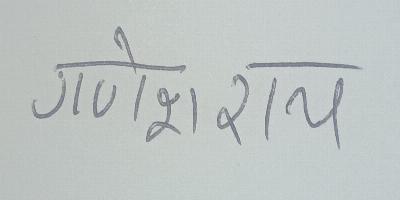 गणेश राय